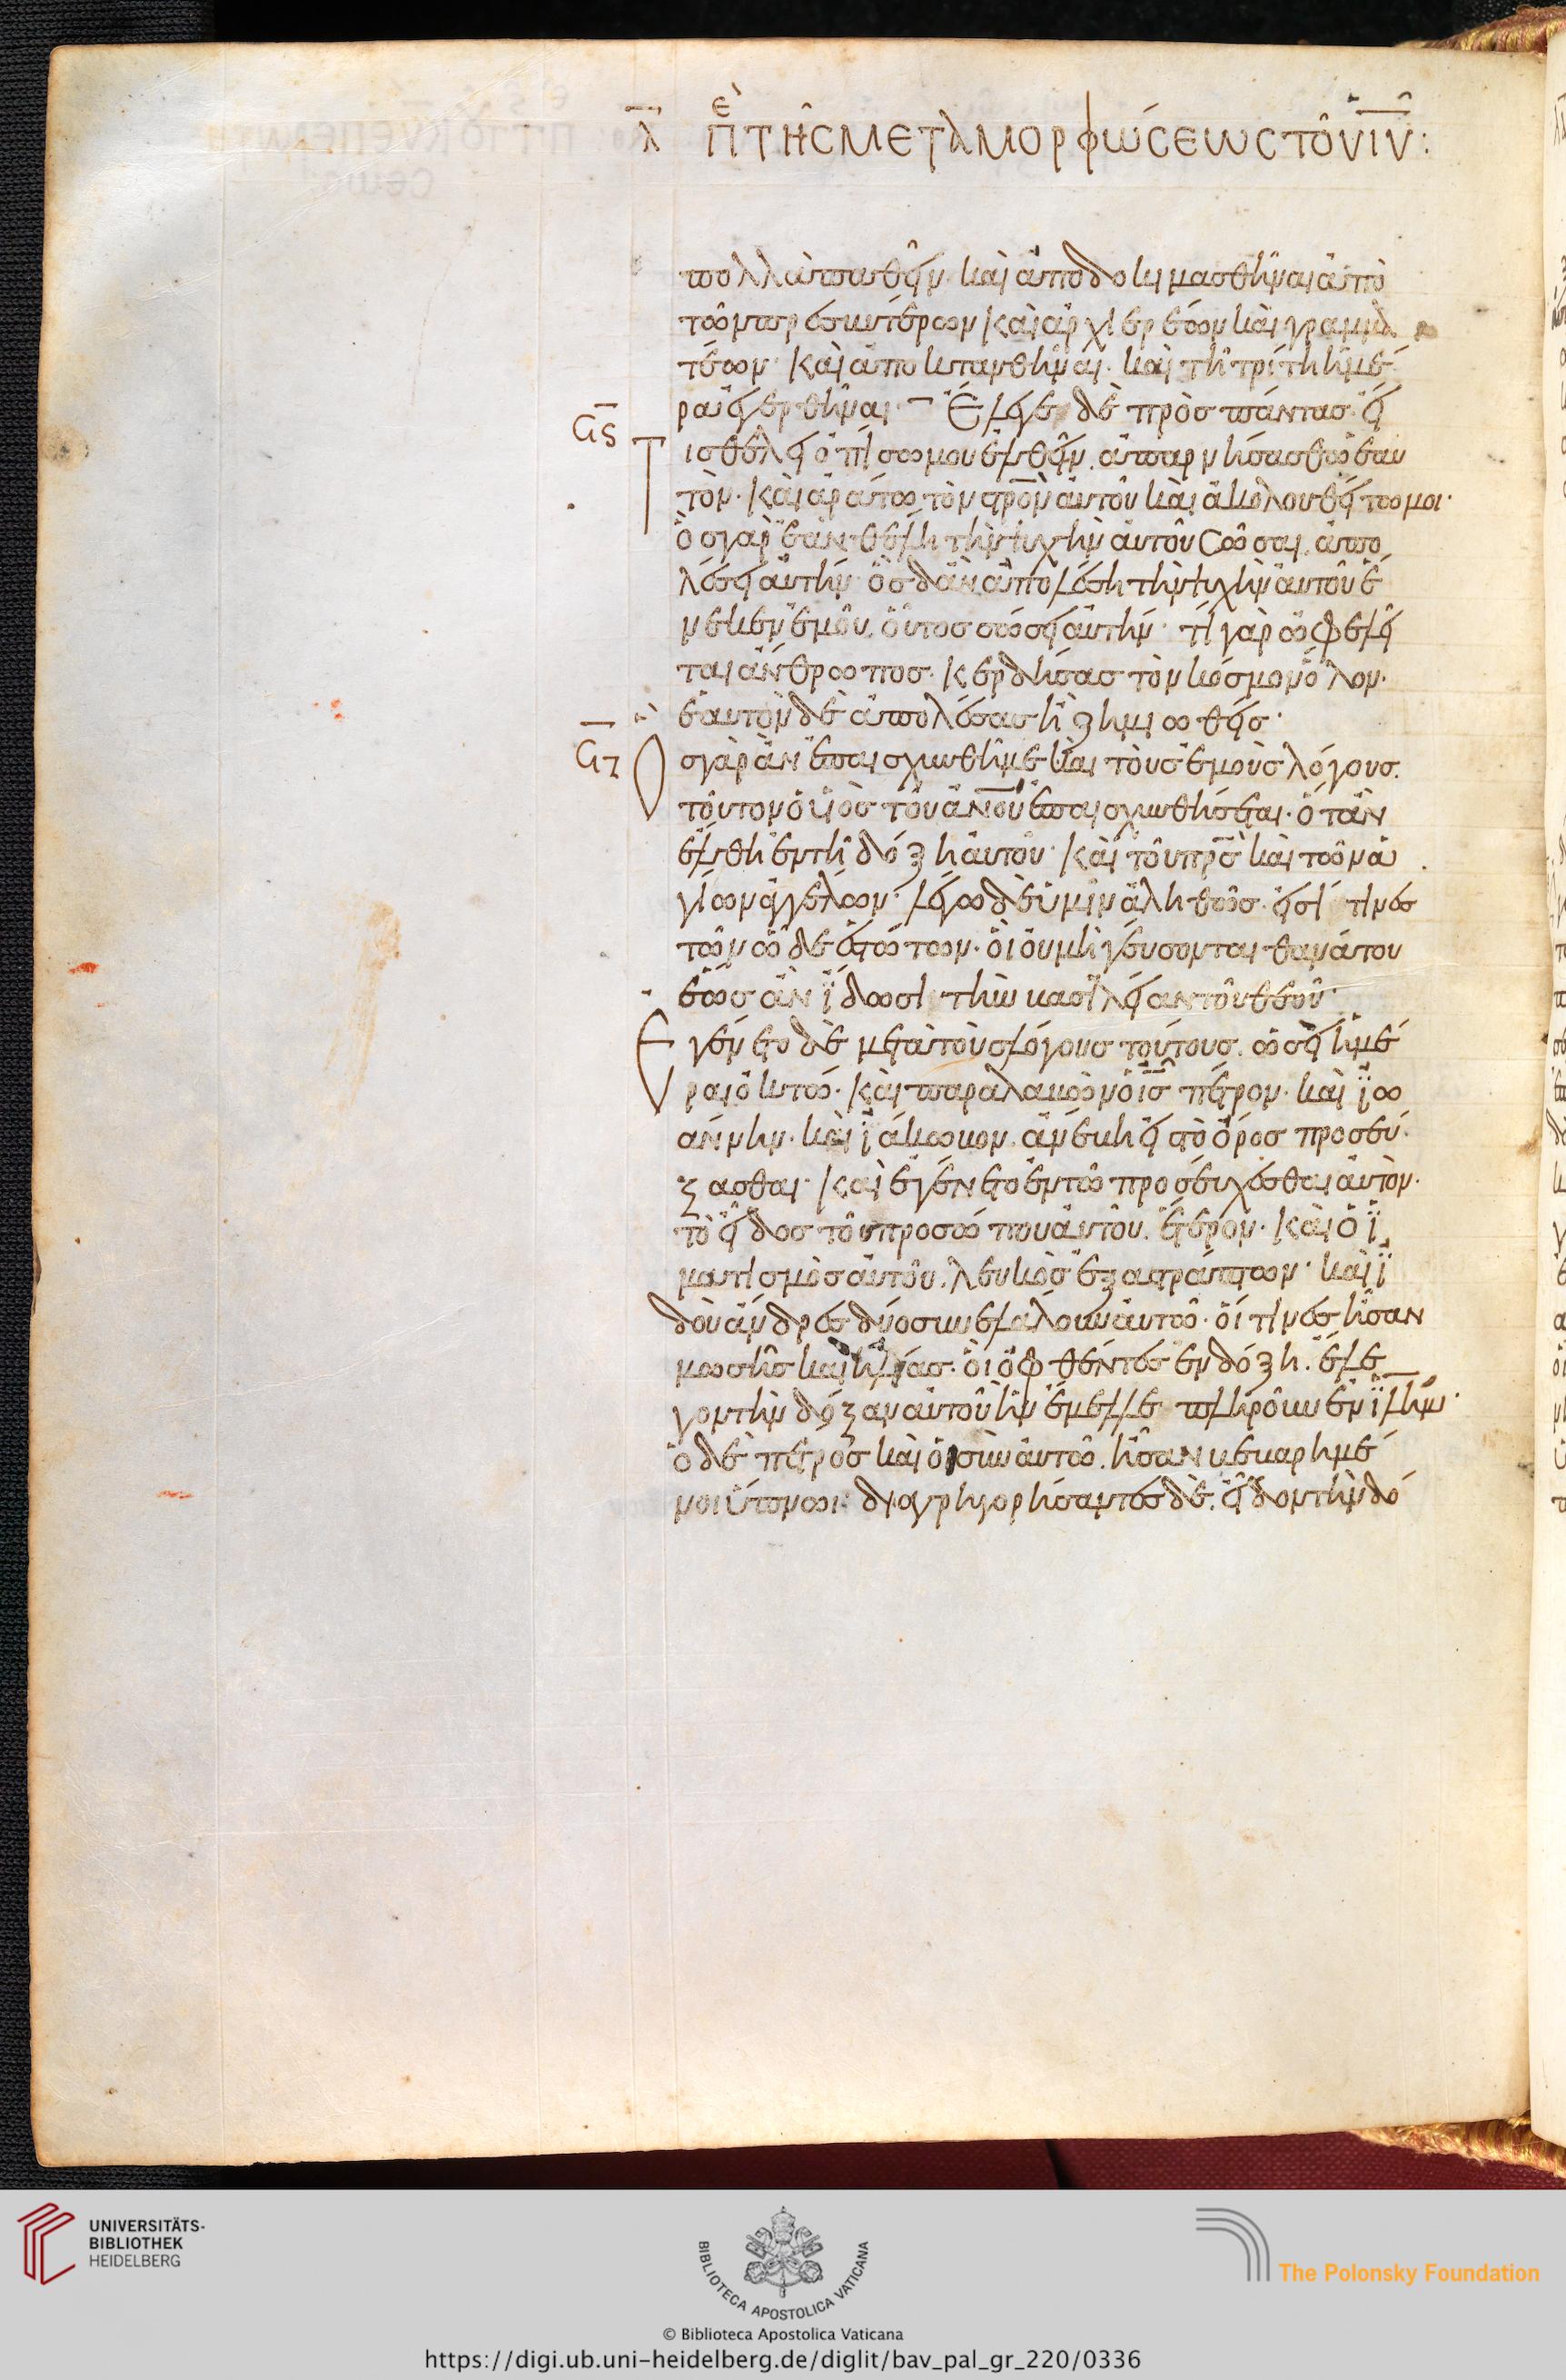 λ̅ πε τῆς μεταμορφώσεως τοῦ ιυ̅:
πολλὰ παθεῖν· καὶ ἀποδοκιμασθῆναι ἀπὸ
τῶν πρεσβυτέρων καὶ ἀρχιερέων καὶ γραμμα
τέων· καὶ ἀποκτανθῆναι· καὶ τῆ τρίτη ἡμέ
ρα ἐγερθῆναι· Ἔλεγε δὲ πρὸς πάντας· εἴ
ϥϛ̅
τις θέλει ὀπίσω μου ἐλθεῖν, ἀπαρνησάσθω ἑαυ
τὸν· καὶ ἀράτω τὸν στρο̅ν αὐτοῦ καὶ ἀκολουθείτω μοι·
ὃς γὰρ ἐὰν θέλη τὴν ψυχὴν αὐτοῦ σῶσαι, ἀπο
λέσει αὐτήν· ὃς δ' ἂν ἀπολέση τὴν ψυχὴν αὐτοῦ ἕ
νεκεν ἐμοῦ, οὗτος σώσει αὐτήν· τί γὰρ ὠφελεῖ
ται ἄνθρωπος· κερδήσας τὸν κόσμον ὅλον·
ἑαυτὸν δὲ ἀπολέσας ἢ ζημιωθείς·
ϥζ̅
Ὃς γὰρ ἂν ἐπαισχυνθῆ με καὶ τοὺς ἐμοὺς λόγους.
τοῦτον ὁ υἱὸς τοῦ ἀνο̅υ ἐπαισχυνθήσεται· ὅταν
ἔλθη ἐν τῆ δόξη αὐτοῦ· καὶ τοῦ πρ̅ς καὶ τῶν ἁ
γίων ἀγγέλων· λέγω δὲ ὑμῖν ἀληθῶς· εἰσί τινες
τῶν ὧδε ἑστώτων· οἳ οὐ μὴ γεύσονται θανάτου
ἕως ἂν ἴδωσι τὴν βασιλείαν τοῦ θεοῦ·
Ἐγένετο δὲ μετὰ τοὺς λόγους τούτους. ὡσεὶ ἡμέ
ραι ὀκτώ· καὶ παραλαβὼν ὁ ι̅ς πέτρον· καὶ ἰω
άννην· καὶ ἰάκωβον. ἀνέβη εἰς τὸ ὄρος προσεύ
ξασθαι· καὶ ἐγένετο ἐν τῶ προσεύχεσθαι αὐτὸν·
τὸ εἶδος τοῦ προσώπου αὐτοῦ. ἕτερον· καὶ ὁ ἱ
ματισμὸς αὐτοῦ. λευκὸς ἐξαστράπτων· καὶ ἰ
δοὺ ἄνδρες δύο συνελάλουν αὐτῶ· οἵτινες ἦσαν
μωσῆς καὶ ἠλίας· οἳ ὀφθέντες ἐν δόξη. ἔλε
γον τὴν δόξαν αὐτοῦ ἣν ἔμελλε πληροῦν ἐν ἰ̅λ̅ήμ·
ὁ δὲ πέτρος καὶ οἱ σὺν αὐτῶ. ἦσαν βεβαρημέ
νοι ὕπνωι· διαγρηγορήσαντες δὲ. εἶδον τὴν δό
UNIVERSITÄTS-
BIBLIOTHEK
HEIDELBERG
BIBLIOTECA APOSTOLICA VATICANA
The Polonsky Foundation
© Biblioteca Apostolica Vaticana
https://digi.ub.uni-heidelberg.de/diglit/bav_pal_gr_220/0336